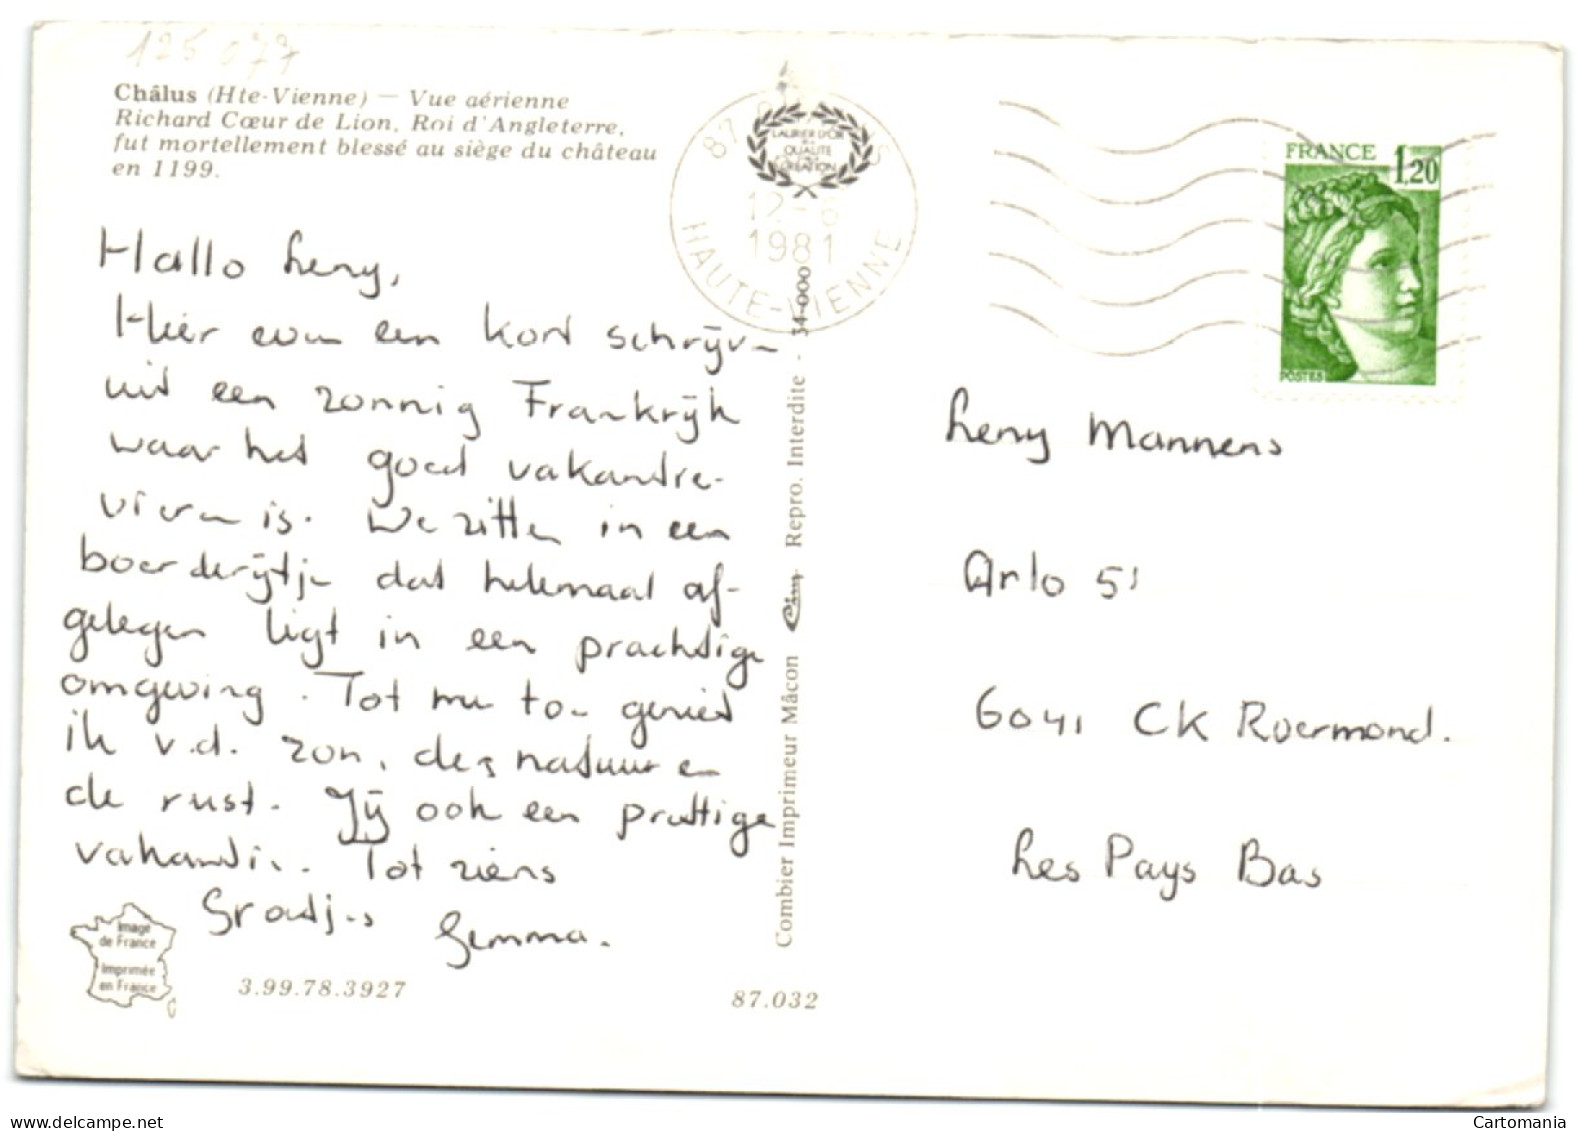 125 077
Châlus (Hte-Vienne) — Vue aérienne
Richard Cœur de Lion, Roi d'Angleterre,
fut mortellement blessé au siège du château
en 1199.
Hallo Leny,
Hier even een kort schrijven
uit een zonnig Frankrijk
waar het goed vakantie-
vieren is. We zitten in een
boerderijtje dat helemaal af-
gelegen ligt in een prachtige
omgeving. Tot nu toe geniet
ik v.d. zon, de natuur en
de rust. Jij ook een prettige
vakantie. Tot ziens
Groetjes
Gemma.
Image
de France
Imprimée
en France
3.99.78.3927
87.032
Combier Imprimeur Mâcon Cim Repro. Interdite - 34-000
LAURIER D'OR
QUALITÉ
CRÉATION
87
12-6
1981
HAUTE-VIENNE
FRANCE 1,20
POSTES
Leny Mannens
Arlo 51
6041 CK Roermond.
Les Pays Bas
Cartomania